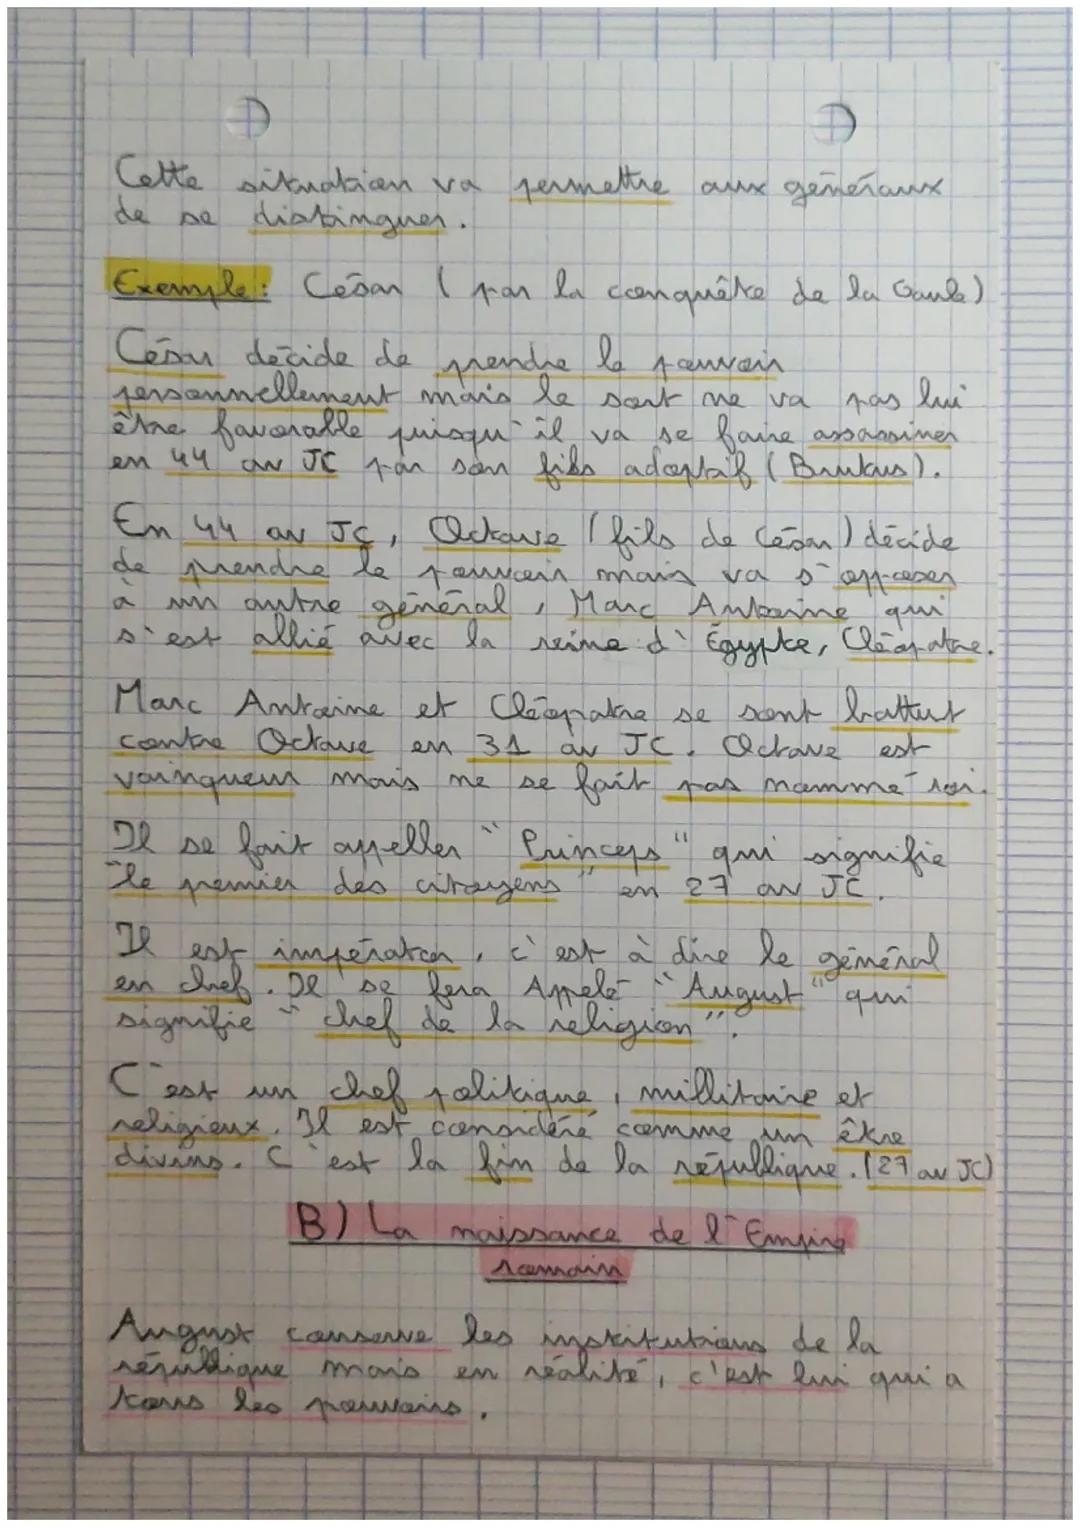 Cette situation va permettre aux généraux
de se distinguer.
Exemple: César ( par la conquête de la Gaule)
César décide de prendre le pouvoir
personnellement mais le sort ne va pas lui
être favorable puisqu'il va se faire assassiner
en 44 av JC par son fils adoptif (Brutus).
En 44 av JC, Octave (fils de César) décide
de prendre le pouvoir mais va s'opposer
à un autre général, Marc Antoine qui
s'est allié avec la reine d'Égypte, Cléopatre.
Marc Antoine et Cléopatre se sont battut
contre Octave en 31 av JC. Octave est
vainqueur mais ne se fait pas nommé roi.
Il se fait appeller "Princeps" qui signifie
"le premier des citoyens" en 27 av JC.
Il est impérator, c'est à dire le général
en chef. Il se fera Appelé "August" qui
signifie "chef de la religion".
C'est un chef politique, millitaire et
religieux. Il est considéré comme un être
divins. C'est la fin de la république. (27 av JC)
B) La naissance de l'Empire
romain
August conserve les institutions de la
république mais en réalité, c'est lui qui a
tous les pouvoirs.